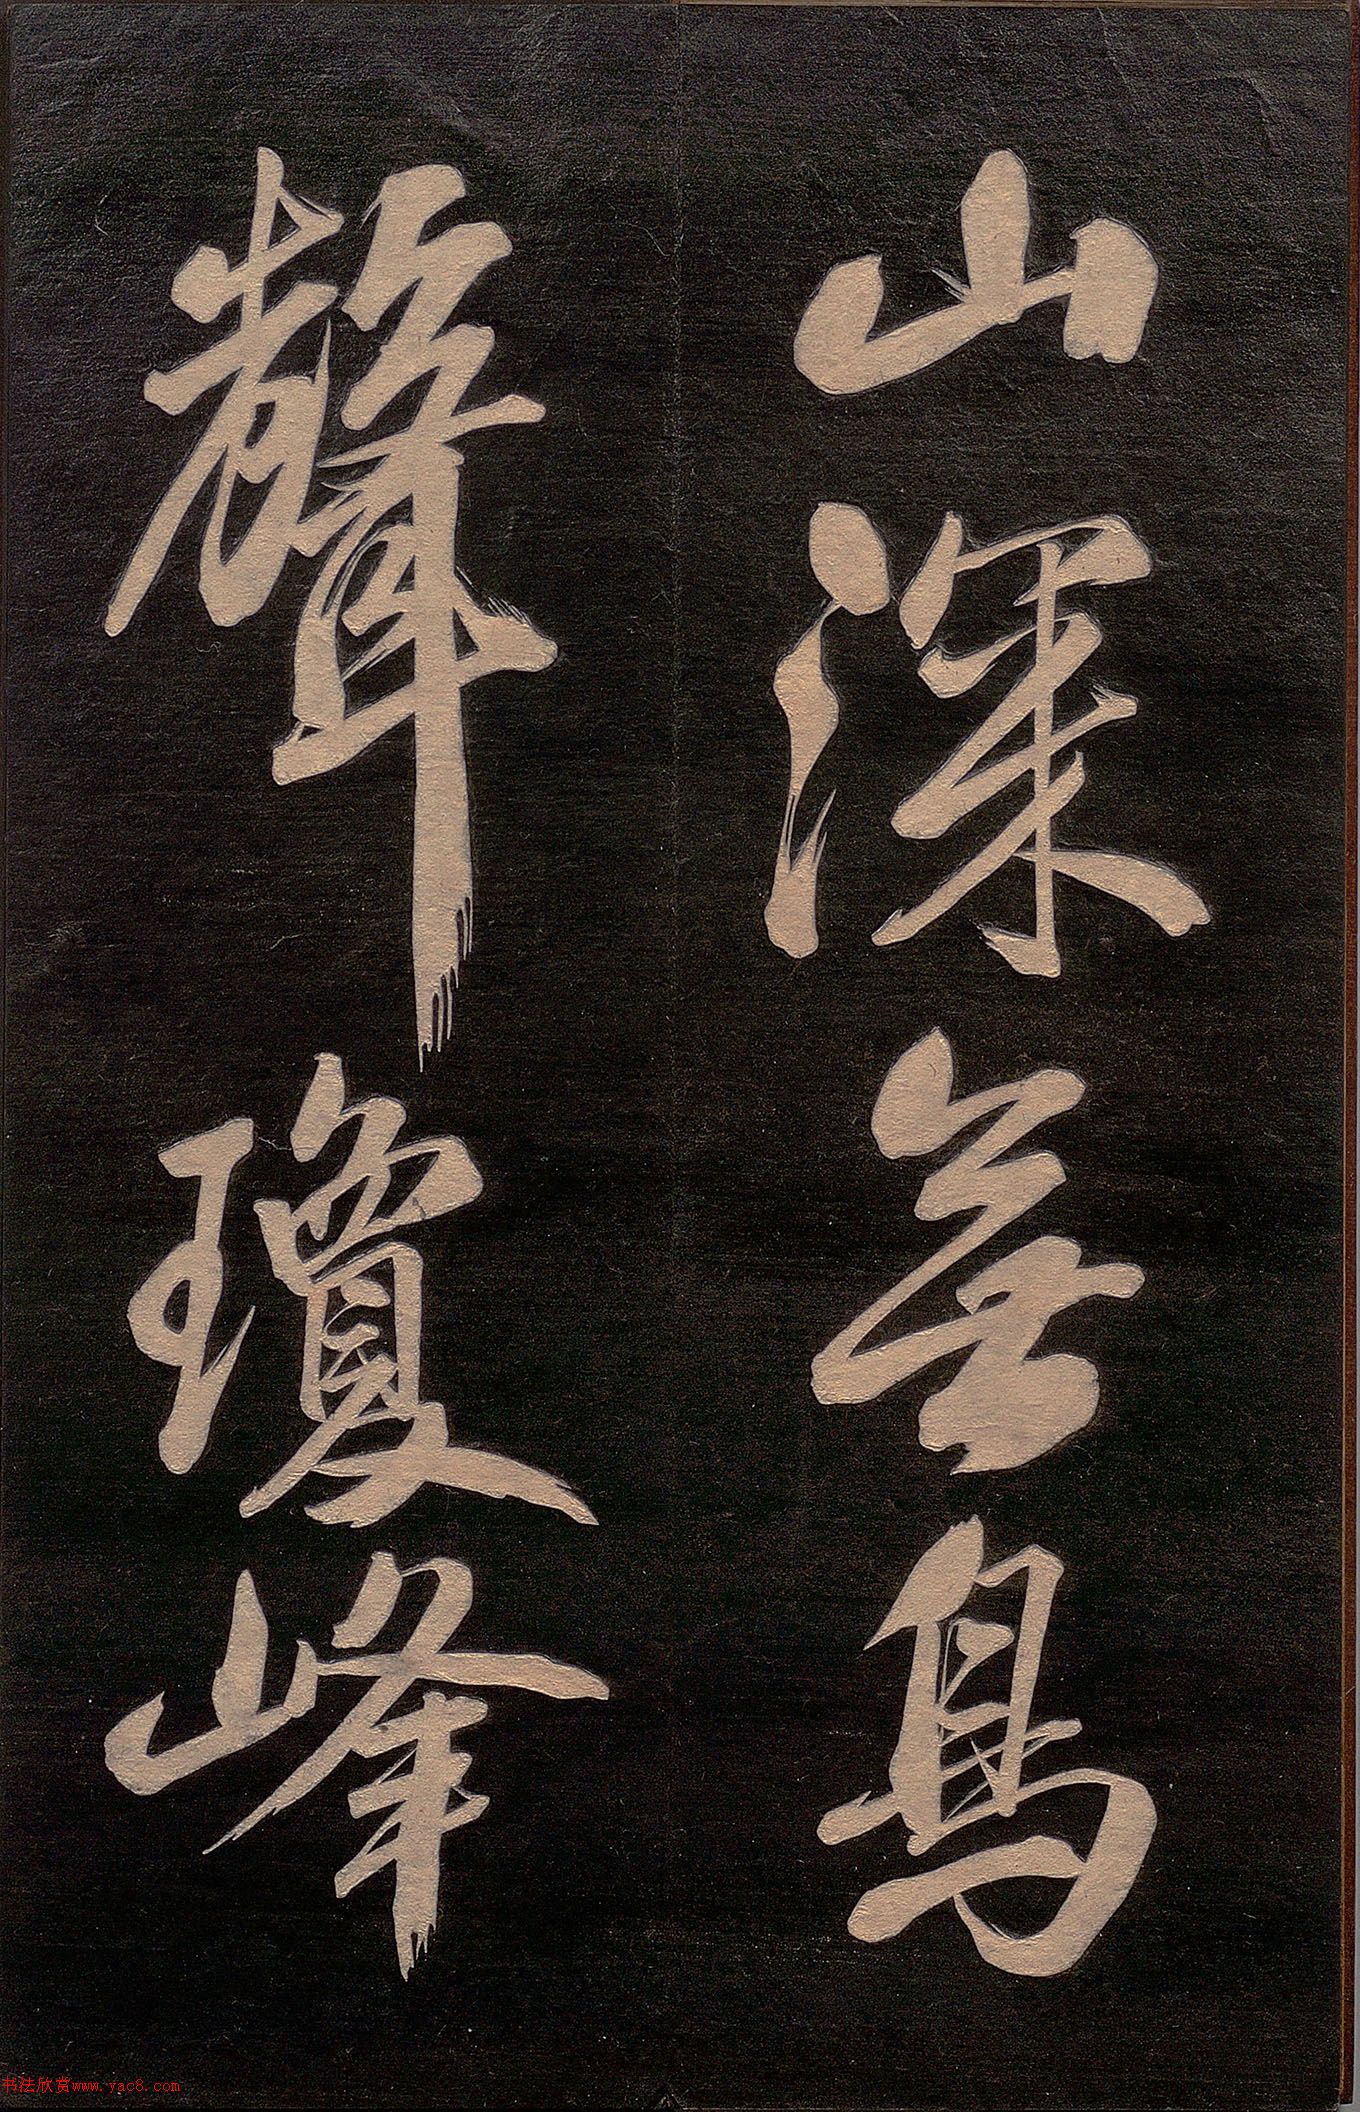 山深無鳥
聲瓊峰
书法欣赏www.yac8.com